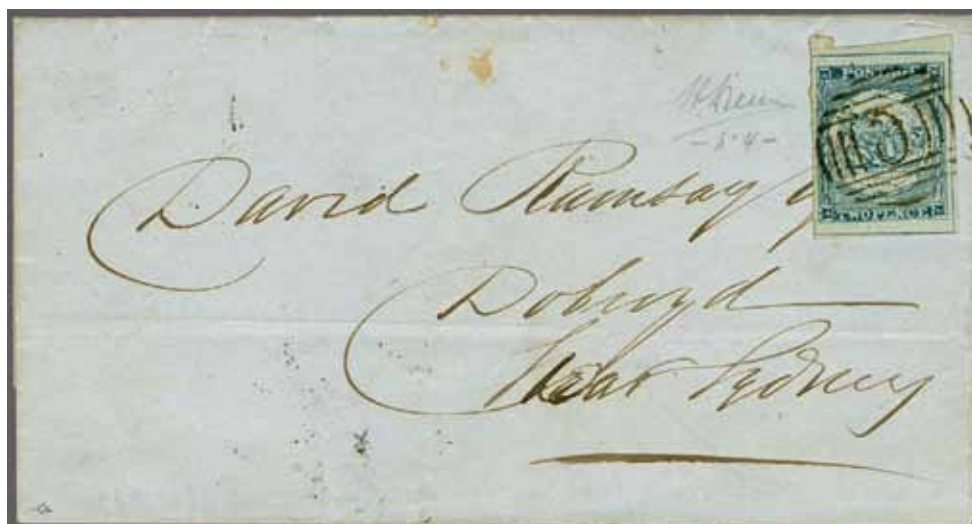 POSTAGE
15
TWO PENCE
David Ramsay
Dobroyd
Near Sydney